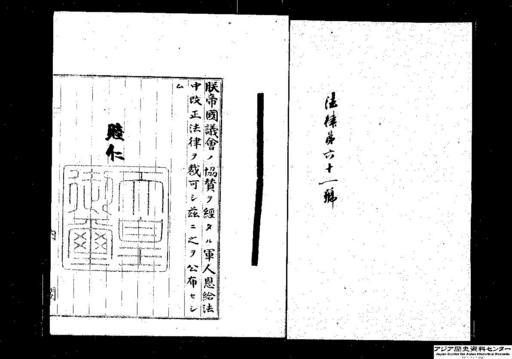 法律第六十一號
朕帝國議會ノ協賛ヲ經タル軍人恩給法
中改正法律ヲ裁可シ茲ニ之ヲ公布セシ
ム
睦仁
天皇
御璽
内閣
アジア歴史資料センター
Japan Center for Asian Historical Records